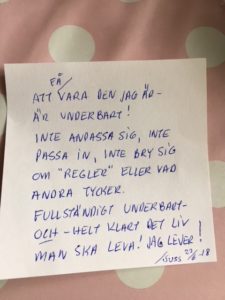 FÅ
ATT VARA DEN JAG ÄR-
ÄR UNDERBART!
INTE ANPASSA SIG, INTE
PASSA IN, INTE BRY SIG
OM "REGLER" ELLER VAD
ANDRA TYCKER.
FULLSTÄNDIGT UNDERBART-
OCH - HELT KLART DET LIV
MAN SKA LEVA! JAG LEVER!